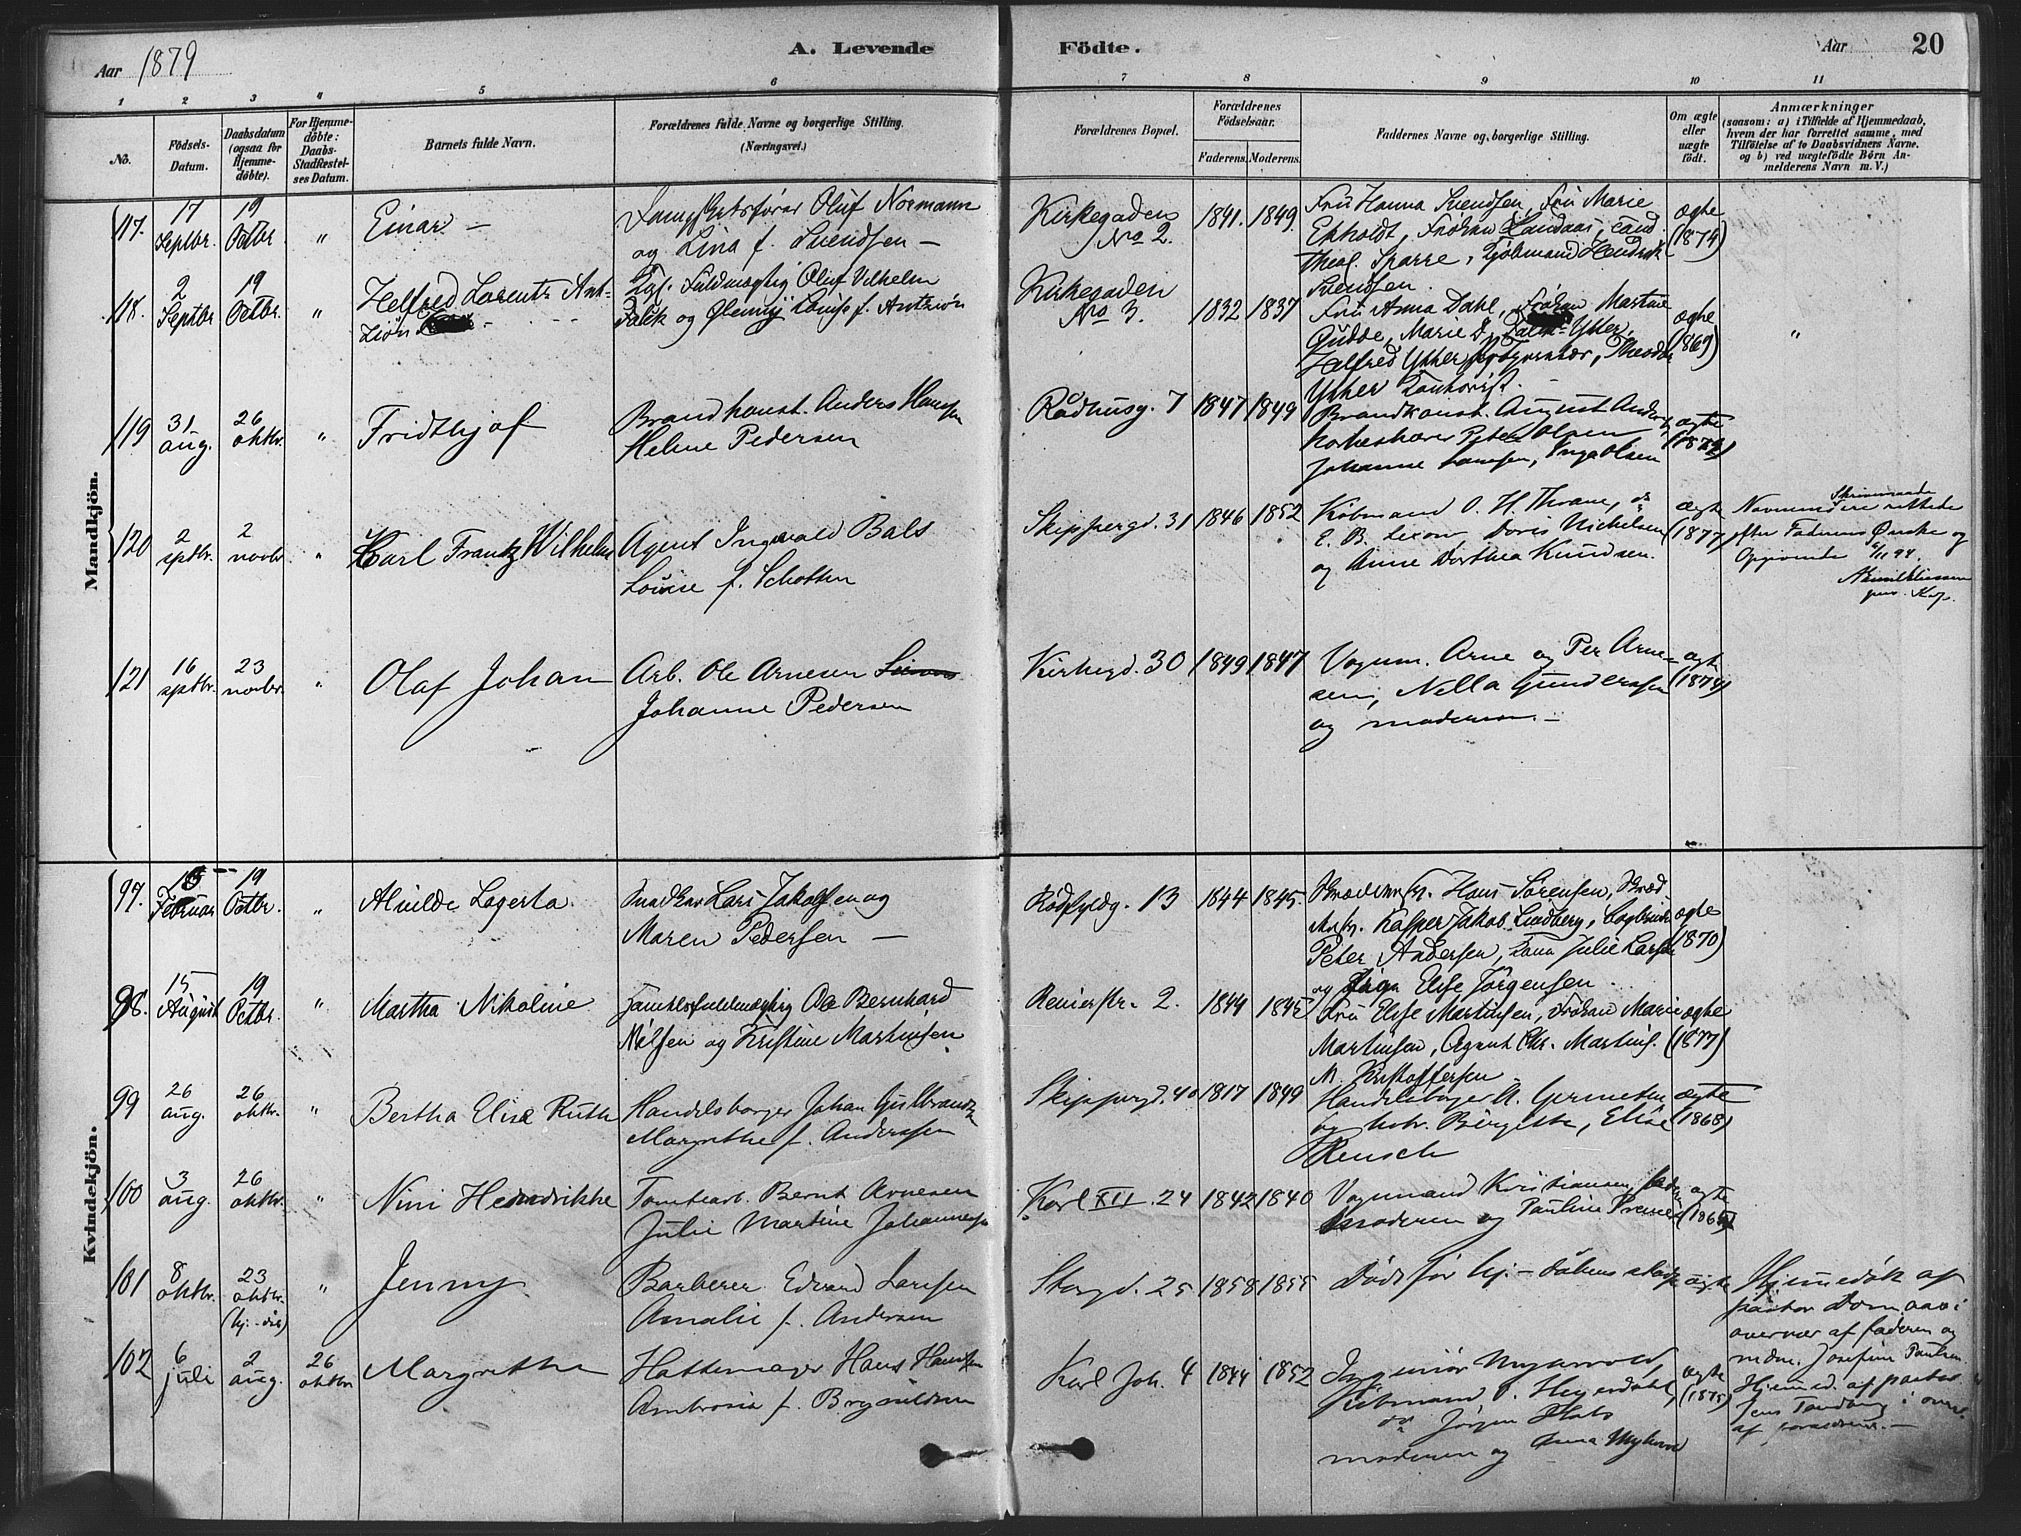 Aar 1879
A. Levende
Födte.
Aar
20
1
2
3
4
5
6
7
8
9
10
11
No.
Födsels-
Datum.
Daabsdatum
(ogsaa for
Hjemme-
döbte).
For Hjemme-
döbte:
Daabs-
Stadfæstel-
ses Datum.
Barnets fulde Navn.
Forældrenes fulde Navne og borgerlige Stilling.
(Næringsvei.)
Forældrenes Bopæl.
Forældrenes
Födselsaar.
Faderens.
Moderens.
Faddernes Navne og borgerlige Stilling.
Om ægte
eller
uægte
födt.
Anmærkninger
(saasom: a) i Tilfælde af Hjemmedaab,
hvem der har forrettet samme, med
Tilföielse af to Daabsvidners Navne,
og b) ved uægtefödte Børn An-
melderens Navn m. V.)
Mandkjön.
117.
17
Septbr.
19
Octbr.
"
Einar –
Oluf Normann
og Lina f. Svendsen –
Kirkegaden
No 2.
1841.
1849.
Fru Hanna Svendsen, Fru Marie
Ekholdt, Frøken Sandaas, Cand.
Theol. Sparre, Kjøbmand Hendrik
Svendsen.
ægte
(1874)
118.
2
Septbr.
19
Octbr.
"
Helfred Lorentz Ant-
zion
Fuldmægtig Oluf Vilhelm
Falk og Jenny Louise f. Antzion
Kirkegaden
No 3.
1832
1837
Fru Anna Dahl, Frøken Martine
Gudde, Marie D. Falk-Ytter,
Helfred Ytter, Theodor
Ytter
ægte
(1869)
"
119
31
aug.
26
oktbr.
"
Fridthjof
Brandkonst. Anders Hansen
Helene Pedersen
Rådhusg. 7
1847
1849
Brandkonst. August Anders
Peter Olsen
Johanne Hansen, Inga Olsen
ægte
120
2
sptbr.
2
novbr.
"
Carl Frantz Wilhelm
Agent Ingvald Bals
Louise f. Schotten
Skippergd. 31
1846
1852
Købmand O. H. Thrane, do
E. B. Lexow Doris Nichelsen
og Anne Dorthea Knudsen.
ægte
(1877)
Navnenes Skrivemaade rettede
efter Faderens Ønske og
Opgivende 6/11 94.
121
16
sptbr.
23
novbr.
"
Olaf Johan
Arb. Ole Arnesen
Johanne Pedersen
Kirkegd. 30
1849
1847
Vognm. Arne og Per Arne-
sen, Nella Gundersen
og moderen. –
ægte
(1874)
Kvindekjön.
97.
Februar
19
Octbr.
"
Alvilde Lagerta.
Snedker Lars Jakobsen og
Maren Pedersen –
Rådhusg. 13
1844
1845.
Skrædermstr. Hans Sørensen, Skræd
Mstr. Kasper Jakob Lindberg, Bogbinder
Peter Andersen, Fru Julie Larsen
og Elise Jørgensen
ægte
(1870)
98.
15
August
19
Octbr.
"
Martha Nikoline
Handelsfuldmægtig Ole Bernhard
Nilsen og Kristine Martinsen
Reinerstr. 2.
1844
1845
Fru Elise Martinsen, Frøken Marie
Martinsen, Agent Chr. Martins.
M. Kristoffersen
ægte
(1877)
99
26
aug.
26
oktbr.
"
Bertha Elise Ruth
Handelsborger Johan Gulbrandsen
Margrethe f. Anderssen
Skippergd. 40
1817
1849
Handelsborger A. Germeten
og Birgitte, Elise
Rensch
ægte
(1868)
100
3
aug.
26
oktbr.
"
Nini Hendrikke
Tomtearb. Bernt Arnesen
Julie Martine Johannesen
Karl XII. 24
1842
1840
Vognmand Kristiansen,
moderen og Pauline
ægte
101
8
oktbr.
23
oktbr.
(hj.-døb)
"
Jenny
Barberer Edvard Larsen
Amalie f. Andersen
Storgd. 25
1858
1855
Død før hj.-dåbens stadf.
ægte
Hjemmedøbt af
pastor Dom aas i
overvær af faderen og
mdm. Josefine Paulsen
102
6
juli
2
aug.
26
oktbr.
Margrethe
Hattemager Hans Hansen
Ambrosia f. Brynildsen
Karl Joh. 4
1844
1852
Ingeniør Myhrvold,
Købmand O. Heyerdahl,
do Jørgen Holts
moderen og Anna Myhrv.
ægte
(1875)
Hjemmed. af pastor
Jens Tandberg i overv.
af forældrene. –